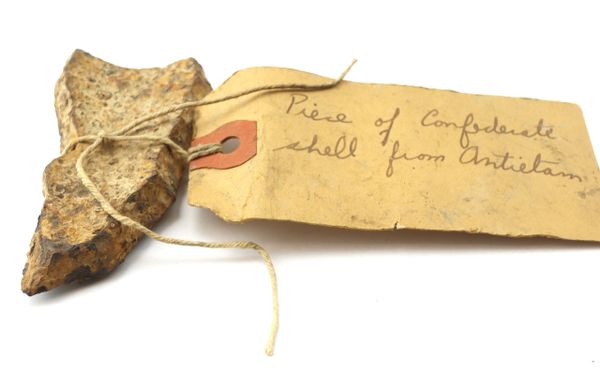 Piece of Confederate
shell from Antietam